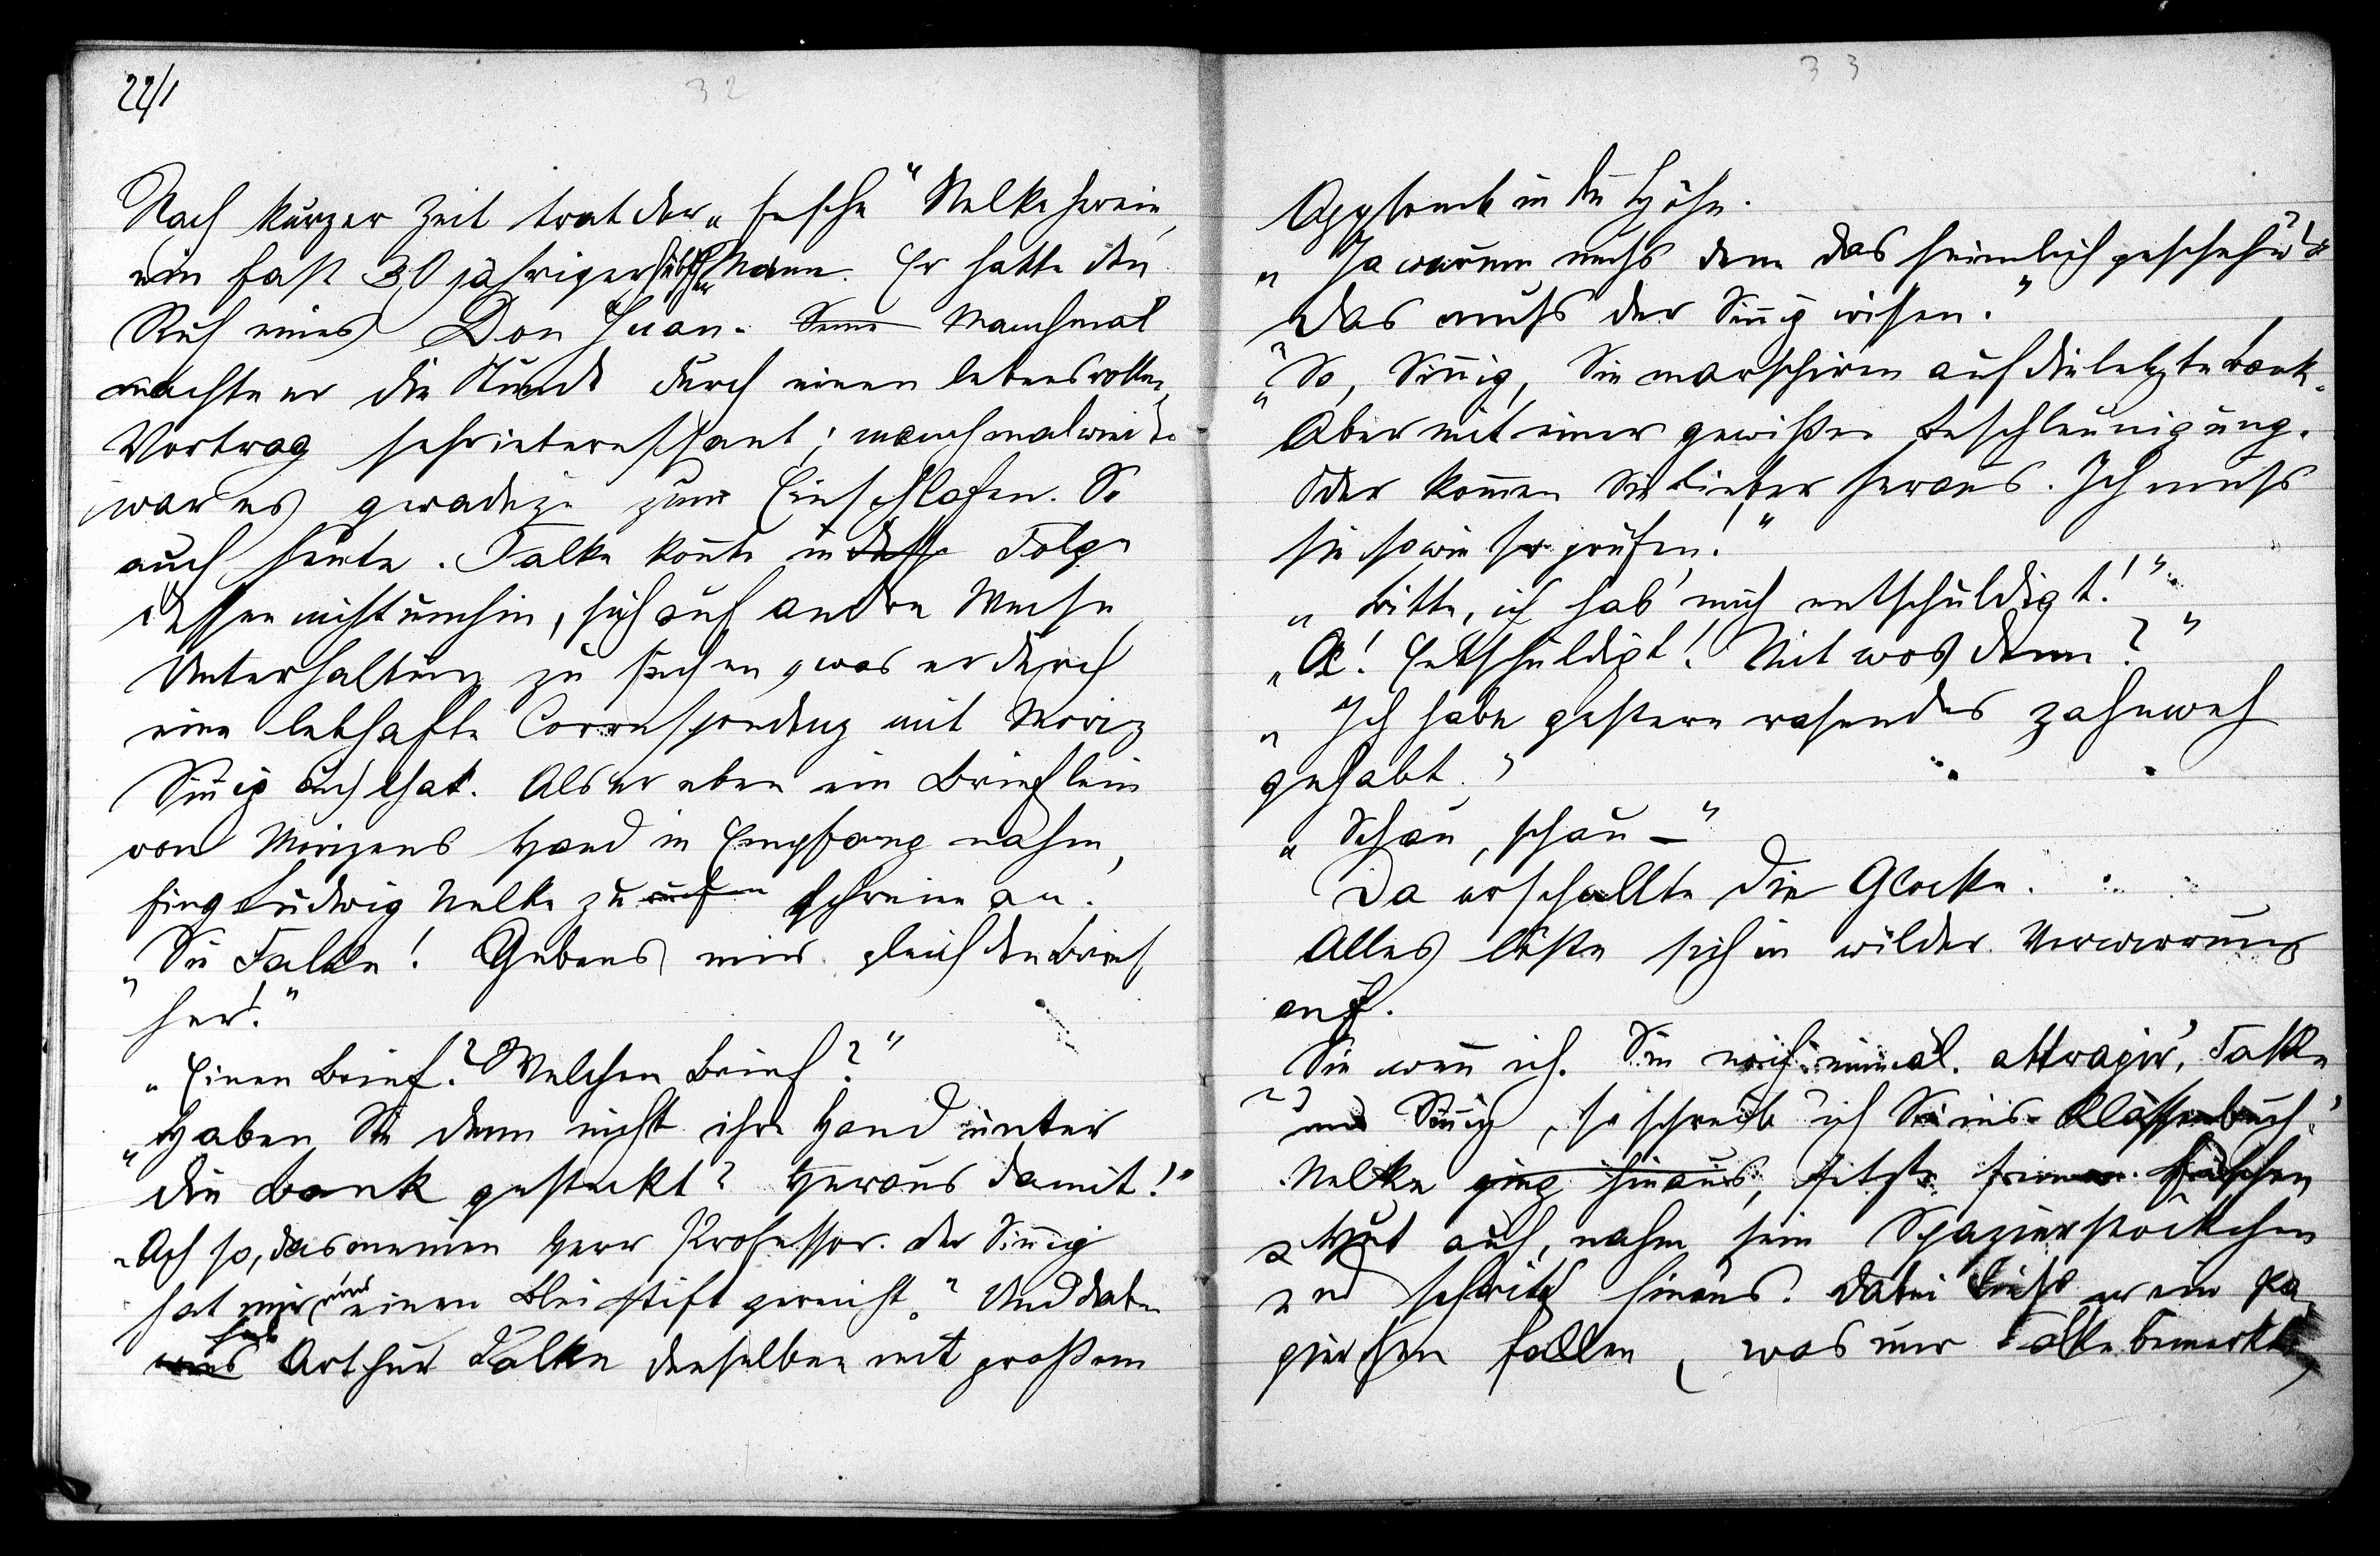 22/1
32
Nach kurzer Zeit trat der „fesche“ Nelke herein,
ein fast 30 jähriger hübscher Mann. Er hatte den
Ruf eines Don Juan. Manchmal
machte er die Stunde durch einen lebensvollen
Vortrag sehr interessant; manchmal wieder
war es geradezu zum Einschlafen. So
auch heute. Falke konte in Folge
dessen nicht umhin, sich auf andre Weise
Unterhaltung zu suchen, was er durch
eine lebhafte Correspondenz mit Moriz
Sinnig auch that. Als er eben ein Brieflein
von Morizens Hand in Empfang nahm,
fing Ludwig Nelke zu schreien an.
„Sie Falke! Gebens mir gleich den Brief
her!“
„Einen Brief? Welchen Brief?“
„Haben Sie denn nicht ihre Hand unter
die Bank gesteckt? Heraus damit!“
„Ach so, das meinen Herr Professor. der Sinnig
hat mir nur einen Bleistift gereicht.“ Und dabei
hob Arthur Falke denselben mit großem
33
Applomb in die Höhe.
„Ja warum muss denn das heimlich geschehn?“
„Das muss der Sinnig wissen.“
„So, Sinnig, Sie marschiren auf die letzte Bank.
Aber mit einer gewißen Beschleunigung.
Oder kommen Sie lieber heraus. Ich muss
sie sowieso prüfen!“
„Bitte, ich hab' mich entschuldigt!“
„A! Entschuldigt! Mit was denn?“
„Ich habe gestern rasendes Zahnweh
gehabt.“
„Schau, schau –“
Da erschallte die Glocke.
Alles löste sich in wilder Verwirrung
auf.
Sie wenn ich Sie noch einmal attrapir', Falke
und Sinnig, so schreib ich Sie ins Klassenbuch.“
Nelke ging hinaus, setzte seinen
Hut auf, nahm sein Spazierstöckchen
und schritt hinaus. Dabei ließ er ein Pa-
pierchen fallen, was nur Falke bemerkte,